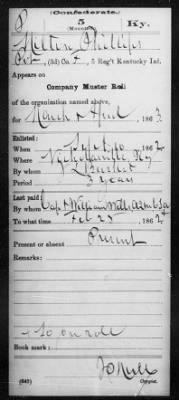 (Confederate.)
P 5 Ky.
(Mounted.)
Milton Phillips
(3d) Co. F, 5 Reg't Kentucky Inf.
Appears on
Company Muster Roll
of the organization named above,
for March & April, 1863
Enlisted:
When Sept 10, 1862
Where Ky
By whom
Period 3 years
Last paid:
By whom Capt
To what time Feb 28, 186
Present or absent Present
Remarks:
on roll
Book mark:
(642) Copyist.